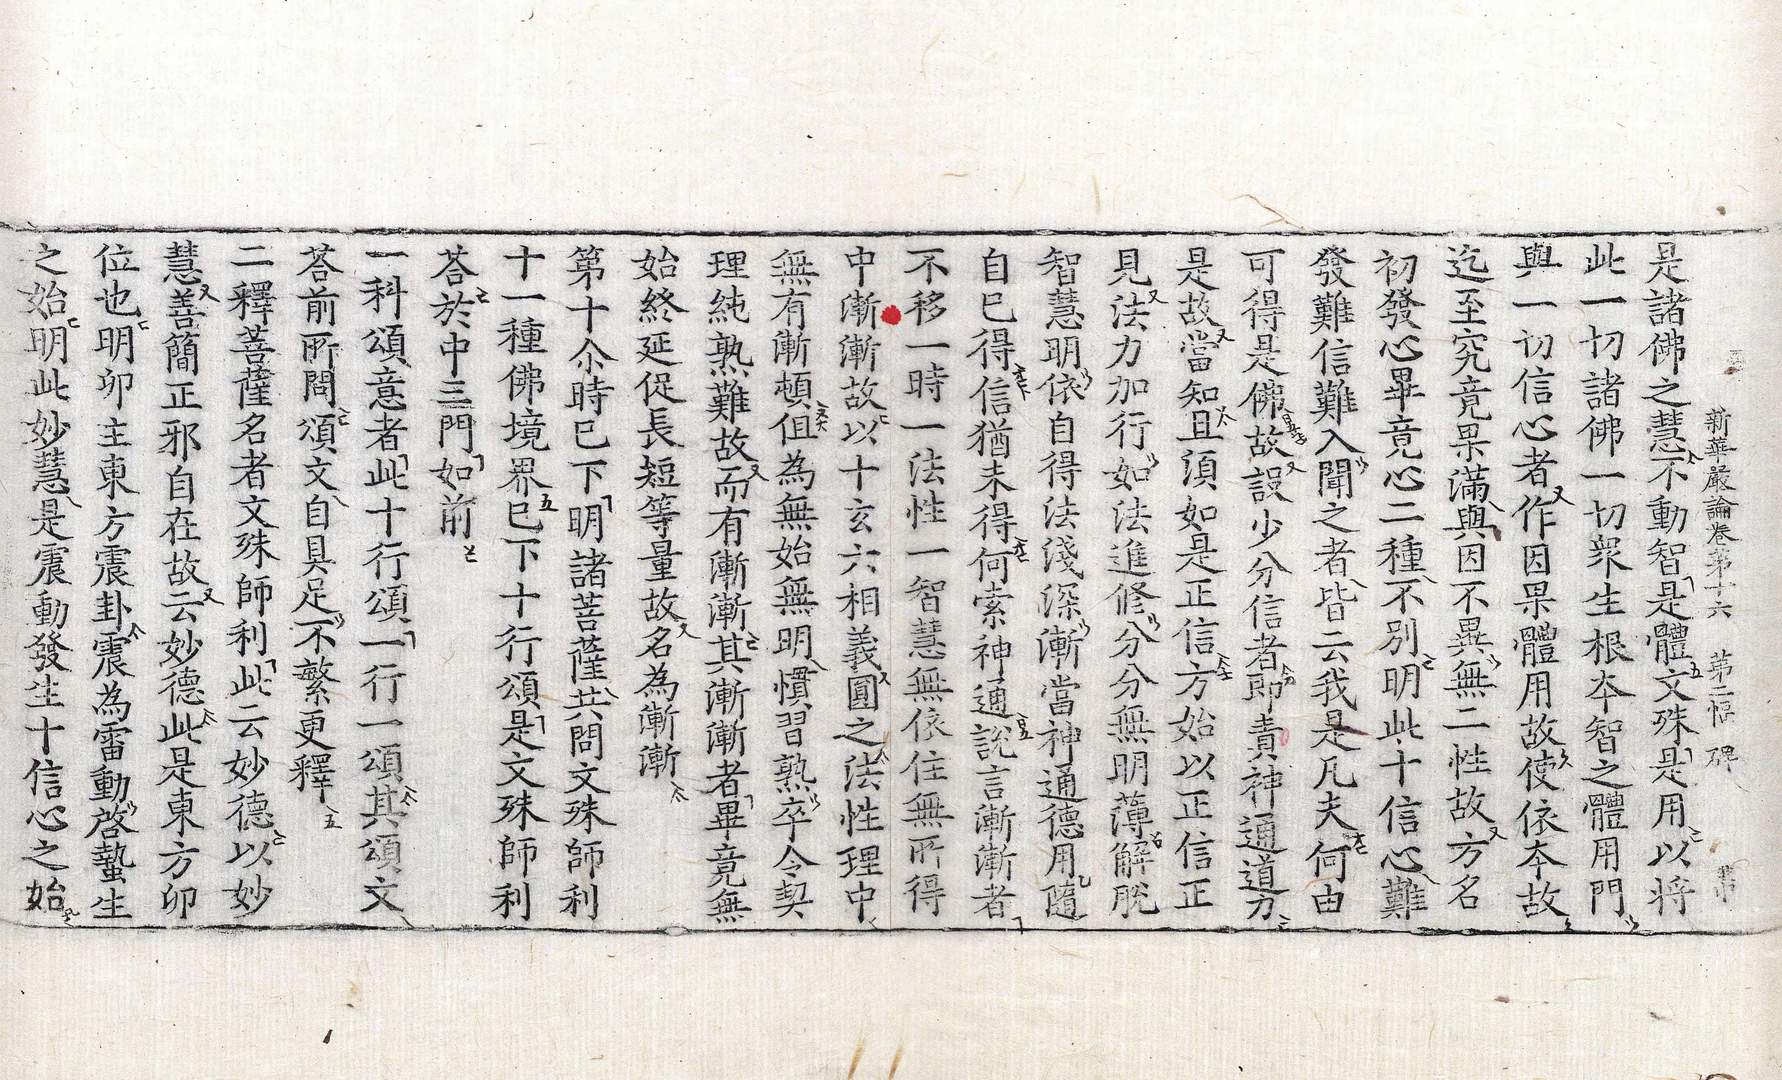 新華嚴論卷第十六 第二幅 碑
是諸佛之慧不動智是體文殊是用以將
此一切諸佛一切衆生根本智之體用門
與一切信心者作因果體用故使依本故
迄至究竟果滿與因不異無二性故方名
初發心畢竟心二種不別明此十信心難
發難信難入聞之者皆云我是凡夫何由
可得是佛故設少分信者即責神通道力
是故當知且須如是正信方始以正信正
見法力加行如法進修分分無明薄解脫
智慧明依自得法淺深漸當神通德用隨
自已得信猶未得何索神通說言漸漸者
不移一時一法性一智慧無依住無所得
中漸漸故以十玄六相義圓之法性理中
無有漸頓但為無始無明慣習熟卒令契
理純熟難故而有漸漸其漸漸者畢竟無
始終延促長短等量故名為漸漸
第十尒時已下明諸菩薩共問文殊師利
十一種佛境界已下十行頌是文殊師利
荅於中三門如前
一科頌意者此十行頌一行一頌其頌文
荅前所問頌文自具足不繁更釋
二釋菩薩名者文殊師利此云妙德以妙
慧善簡正邪自在故云妙德此是東方卯
位也明卯主東方震卦震為雷動啓蟄生
之始明此妙慧是震動發生十信心之始